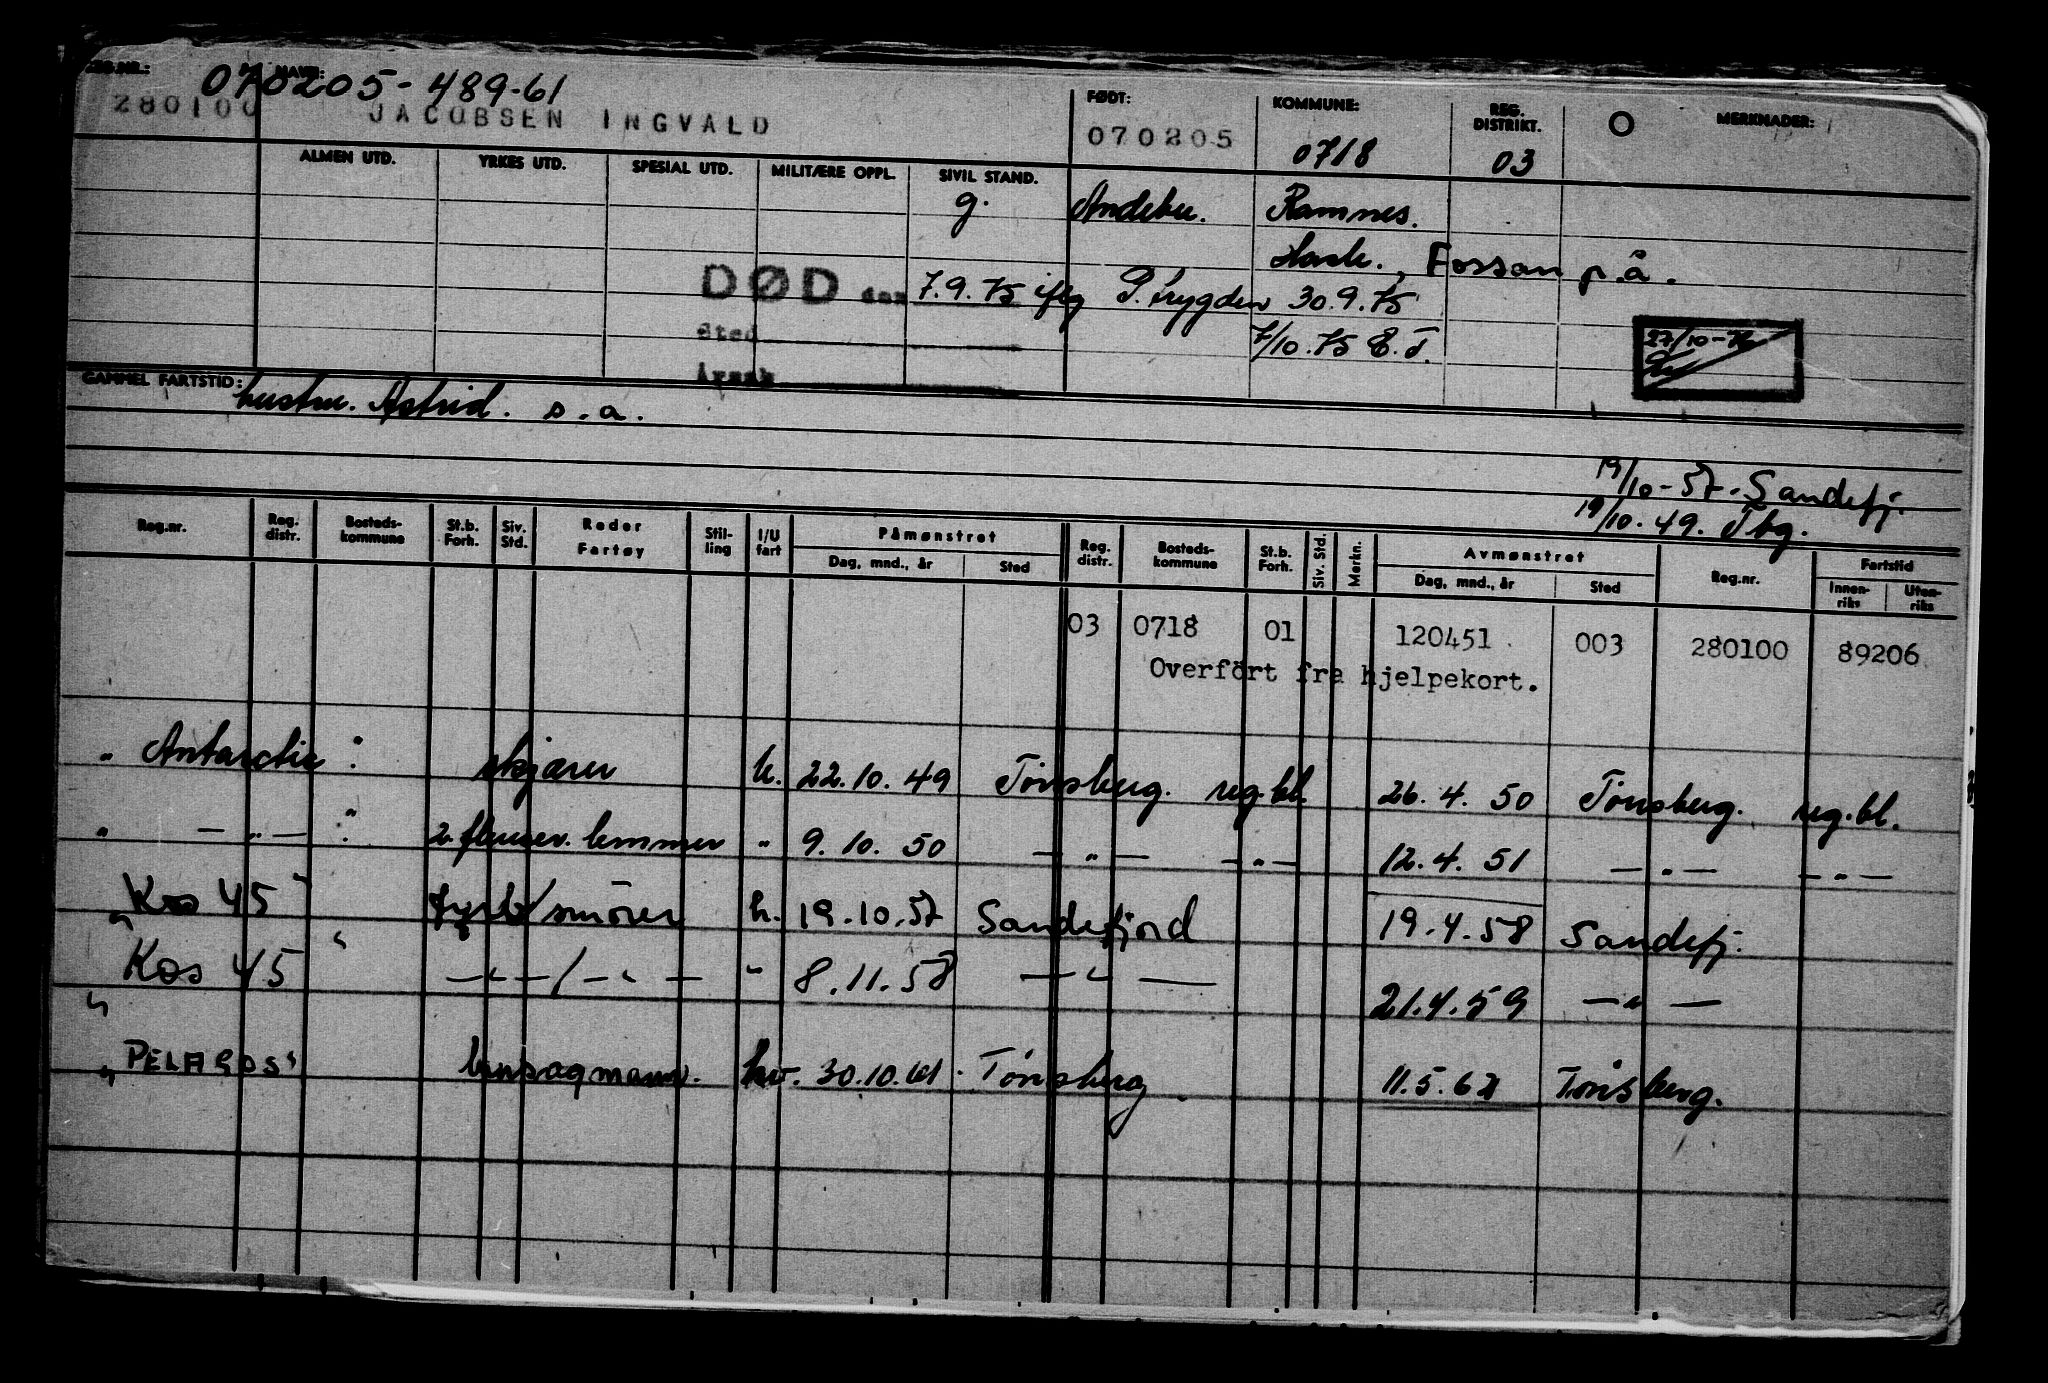 REG.NR.: NAVN: 070205-489-61
280100 JACOBSEN INGVALD
FØDT: 070205
KOMMUNE: 0718
REG. DISTRIKT. 03
MERKNADER:
ALMEN UTD. YRKES UTD. SPESIAL UTD. MILITÆRE OPPL. SIVIL STAND.
g. Andebu. Ramnes.
Fossan p.å.
DØD den 7.9.75 iflg P.trygden 30.9.75
Sted 7/10.75 E.T.
27/10-76
Årsak
GAMMEL FARTSTID: hustru. Astrid. s.a.
19/10-57-Sandefj.
19/10.49. Tbg.
Reg.nr. Reg. distr. Bosteds- kommune St.b. Forh. Siv. Std. Reder Fartøy Stil- ling I/U fart Påmønstret Dag, mnd., år Sted Reg. distr. Bosteds- kommune St.b. Forh. Siv. Std. Merkn. Avmønstret Dag, mnd., år Sted Reg.nr. Fartstid Innen- riks Uten- riks
03 0718 01 120451 003 280100 89206
Overført fra hjelpekort.
" Antarctic " skjærer h. 22.10.49 Tønsberg. reg.bl. 26.4.50 Tønsberg. reg.bl.
" — " — " 2. flenser. lemmer " 9.10.50 — " — — " — 12.4.51 — " — — " —
" Kos 45 " fyrb/smører h. 19.10.57 Sandefjord 19.4.58 Sandefj.
" Kos 45 " — " — / — " — " 8.11.58 — " — 21.4.59 — " —
" PELAGOS " bensagmann. hv. 30.10.61. Tønsberg. 11.5.62 Tønsberg.